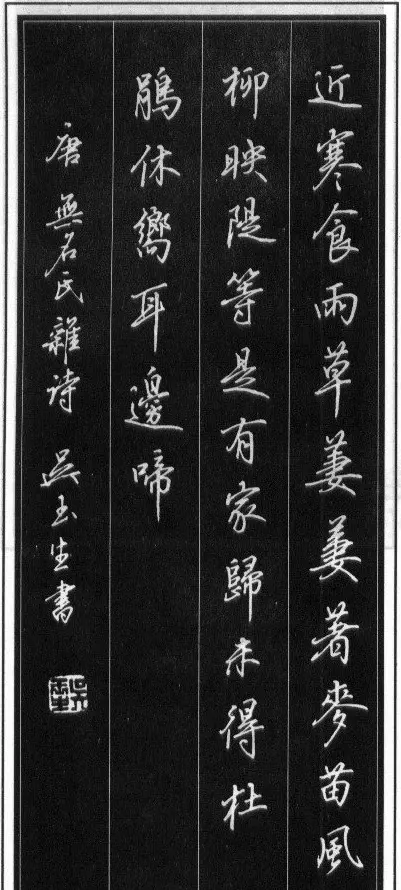 近寒食雨草萋萋著麥苗風
柳映隄等是有家歸未得杜
鵑休嚮耳邊啼
唐無名氏雜诗 吳玉生書